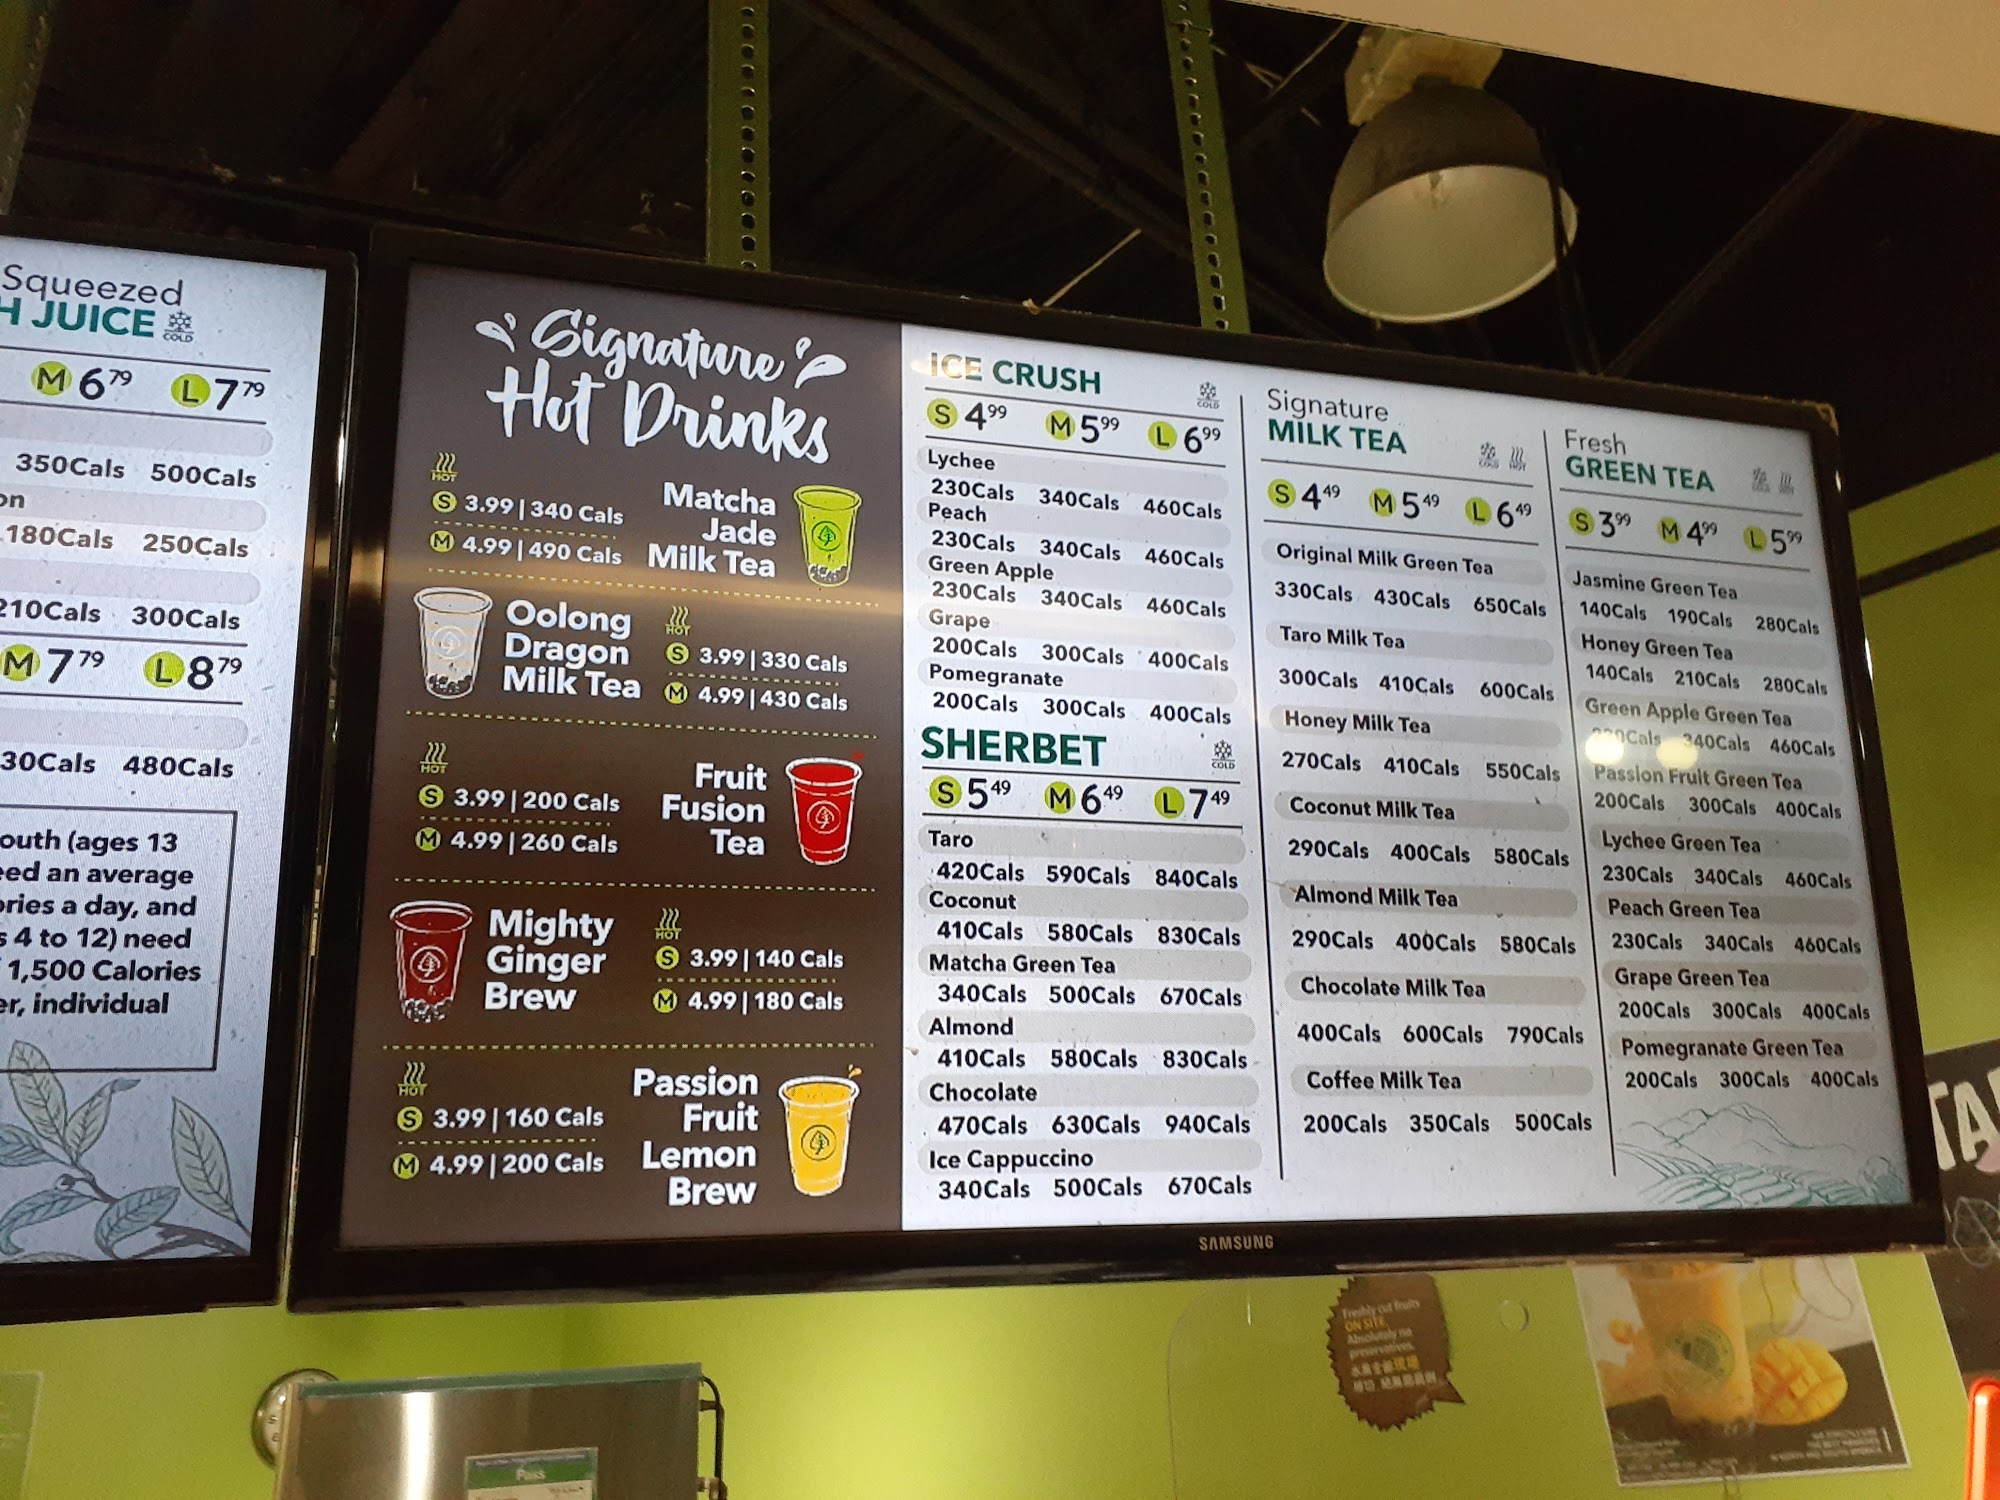 Squeezed
H JUICE
COLD
M 6.79 L 7.79
350Cals 500Cals
on
180Cals 250Cals
210Cals 300Cals
M 7.79 L 8.79
30Cals 480Cals
outh (ages 13
ed an average
ries a day, and
s 4 to 12) need
1,500 Calories
er, individual
Signature
Hot Drinks
HOT
S 3.99 | 340 Cals
M 4.99 | 490 Cals
Matcha
Jade
Milk Tea
Oolong
Dragon
Milk Tea
HOT
S 3.99 | 330 Cals
M 4.99 | 430 Cals
HOT
S 3.99 | 200 Cals
M 4.99 | 260 Cals
Fruit
Fusion
Tea
Mighty
Ginger
Brew
HOT
S 3.99 | 140 Cals
M 4.99 | 180 Cals
HOT
S 3.99 | 160 Cals
M 4.99 | 200 Cals
Passion
Fruit
Lemon
Brew
ICE CRUSH
COLD
S 4.99 M 5.99 L 6.99
Lychee
230Cals 340Cals 460Cals
Peach
230Cals 340Cals 460Cals
Green Apple
230Cals 340Cals 460Cals
Grape
200Cals 300Cals 400Cals
Pomegranate
200Cals 300Cals 400Cals
SHERBET
COLD
S 5.49 M 6.49 L 7.49
Taro
420Cals 590Cals 840Cals
Coconut
410Cals 580Cals 830Cals
Matcha Green Tea
340Cals 500Cals 670Cals
Almond
410Cals 580Cals 830Cals
Chocolate
470Cals 630Cals 940Cals
Ice Cappuccino
340Cals 500Cals 670Cals
Signature
MILK TEA
COLD HOT
S 4.49 M 5.49 L 6.49
Original Milk Green Tea
330Cals 430Cals 650Cals
Taro Milk Tea
300Cals 410Cals 600Cals
Honey Milk Tea
270Cals 410Cals 550Cals
Coconut Milk Tea
290Cals 400Cals 580Cals
Almond Milk Tea
290Cals 400Cals 580Cals
Chocolate Milk Tea
400Cals 600Cals 790Cals
Coffee Milk Tea
200Cals 350Cals 500Cals
Fresh
GREEN TEA
S 3.99 M 4.99 L 5.99
Jasmine Green Tea
140Cals 190Cals 280Cals
Honey Green Tea
140Cals 210Cals 280Cals
Green Apple Green Tea
340Cals 460Cals
Passion Fruit Green Tea
200Cals 300Cals 400Cals
Lychee Green Tea
230Cals 340Cals 460Cals
Peach Green Tea
230Cals 340Cals 460Cals
Grape Green Tea
200Cals 300Cals 400Cals
Pomegranate Green Tea
200Cals 300Cals 400Cals
SAMSUNG
TA
Freshly cut fruits
ON SITE.
Absolutely no
preservatives.
Pass